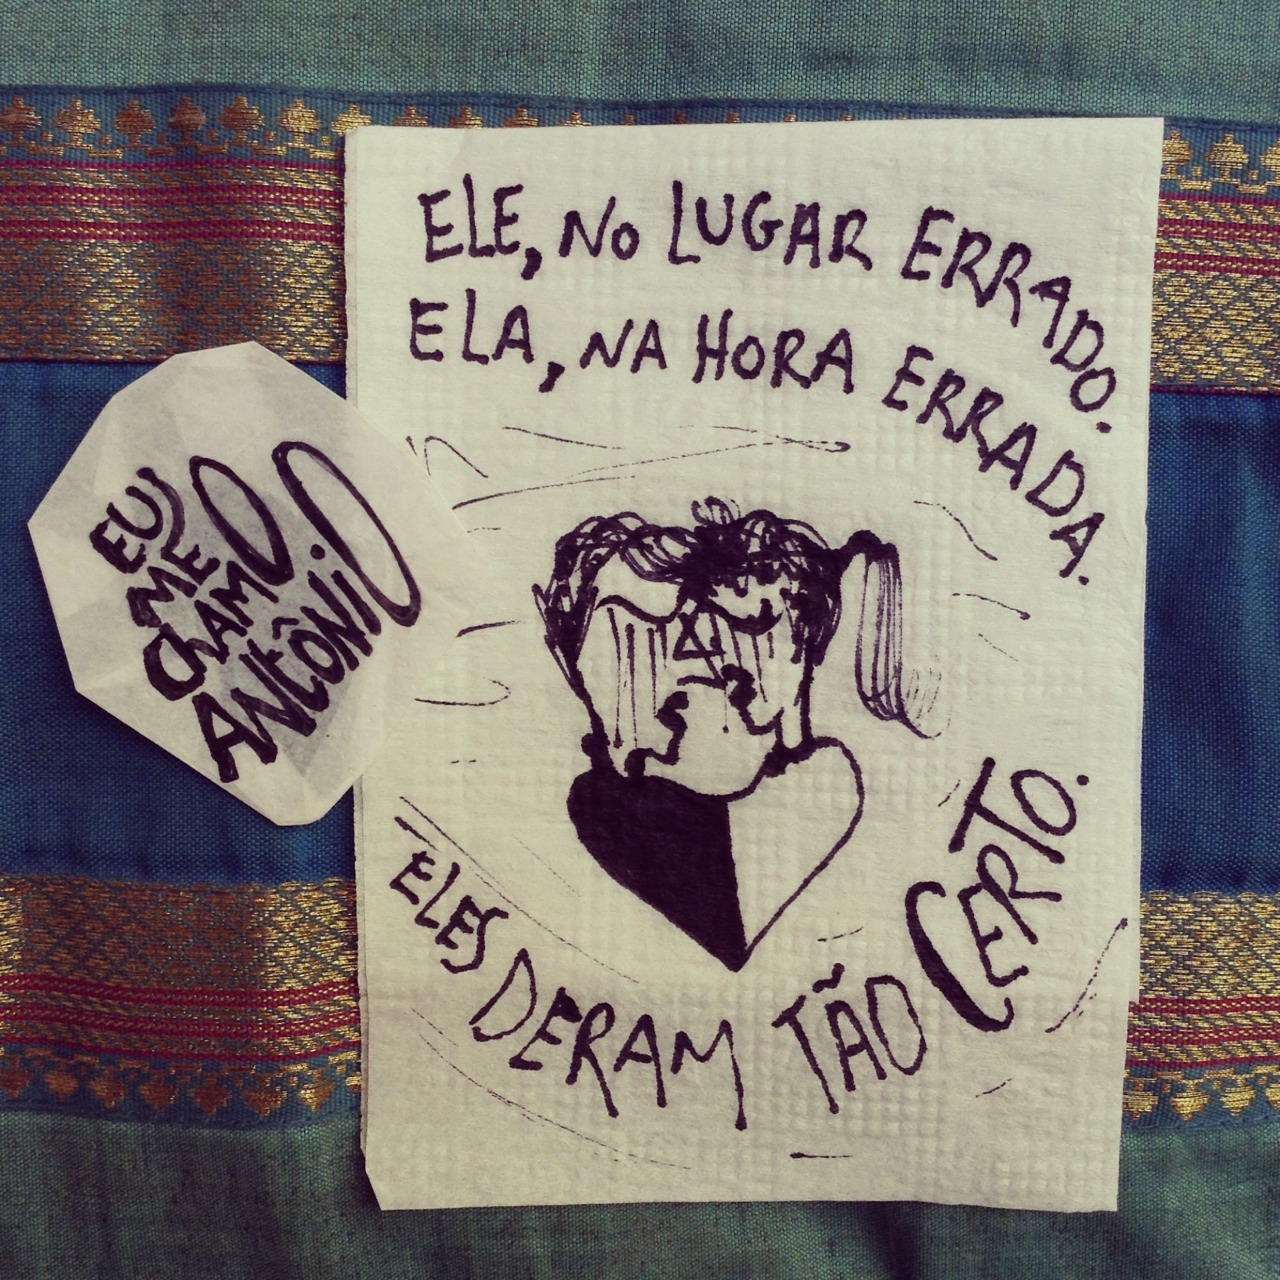 ELE, NO LUGAR ERRADO.
ELA, NA HORA ERRADA.
ELES DERAM TÃO CERTO.
EU
ME
CHAMO
ANTÔNIO